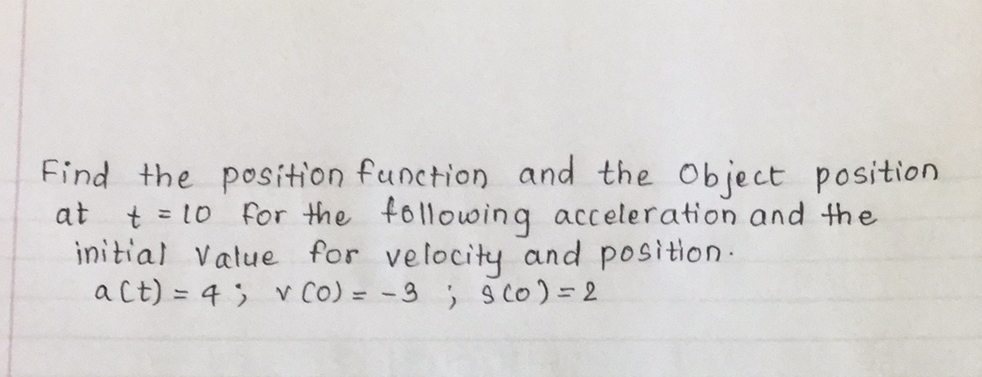 Find the position function and the Object position
at t = 10 for the following acceleration and the
initial Value for velocity and position.
a(t) = 4 ; v(0) = -3 ; s(0) = 2